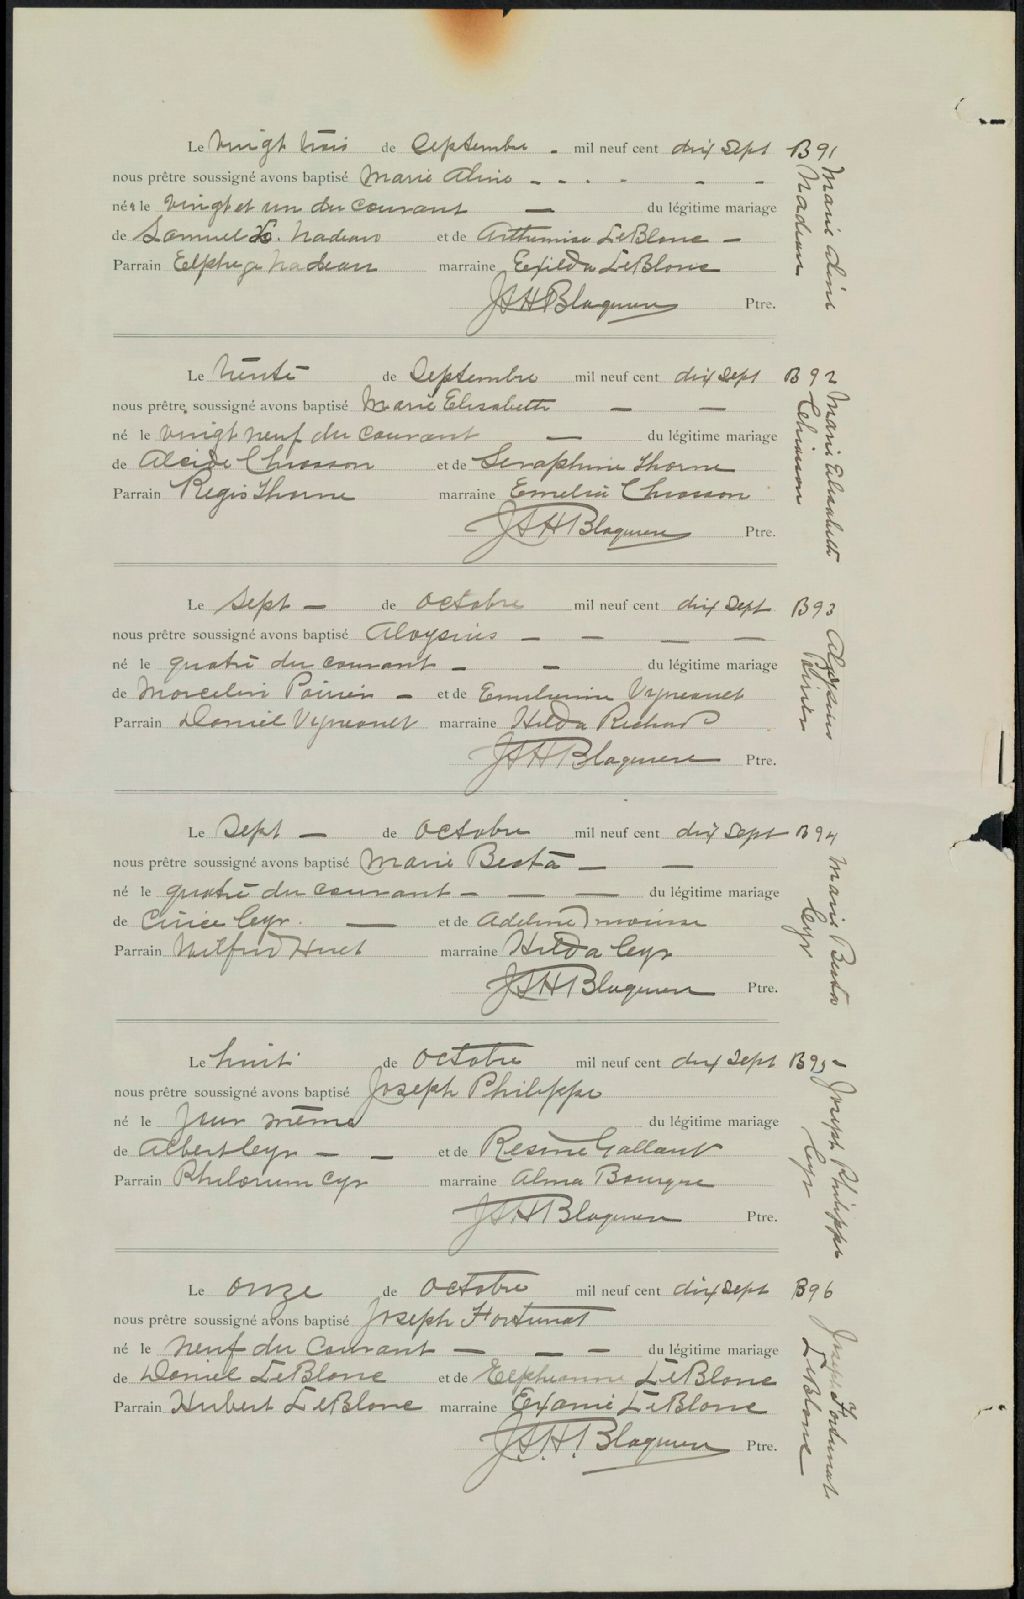 Le vingt trois de Septembre - mil neuf cent dix Sept B 91
nous prêtre soussigné avons baptisé Marie Aline - - - - - -
née le vingt et un du courant — du légitime mariage
de Samuel Nadeau et de Arthemise LeBlanc -
Parrain Elphege Nadeau marraine Exilda LeBlanc
JSHBlaquiere Ptre.
Marie Aline
Nadeau
Le trente de Septembre mil neuf cent dix Sept B 92
nous prêtre soussigné avons baptisé Marie Elisabeth — —
né le vingt neuf du courant — du légitime mariage
de Alcide Chiasson et de Seraphine Thorne
Parrain Regis Thorne marraine Emelia Chiasson
JSHBlaquiere Ptre.
Marie Elisabeth
Chiasson
Le Sept — de Octobre mil neuf cent dix Sept B 93
nous prêtre soussigné avons baptisé Aloysius — — — —
né le quatre du courant - - du légitime mariage
de Marcelin Poirier — et de Vigneault
Parrain Daniel Vigneault marraine Hilda Richard
JSHBlaquiere Ptre.
Aloysius
Poirier
Le Sept — de Octobre mil neuf cent dix Sept B 94
nous prêtre soussigné avons baptisé Marie Beata — —
né le quatre du courant - — — du légitime mariage
de Cyr. — et de Adeline
Parrain Wilfrid Huet marraine Hilda Cyr
JSHBlaquiere Ptre.
Marie Beata
Cyr
Le huit de Octobre mil neuf cent dix Sept B 95
nous prêtre soussigné avons baptisé Joseph Philippe
né le jour même du légitime mariage
de Albert Cyr — — et de Gallant
Parrain Philorum Cyr marraine Alma Bourque
JSHBlaquiere Ptre.
Joseph Philippe
Cyr
Le onze de Octobre mil neuf cent dix Sept B 96
nous prêtre soussigné avons baptisé Joseph Fortunat
né le neuf du Courant — — — du légitime mariage
de Daniel LeBlanc et de LeBlanc
Parrain Hubert LeBlanc marraine Exanie LeBlanc
J.S.H.Blaquiere Ptre.
Joseph Fortunat
LeBlanc